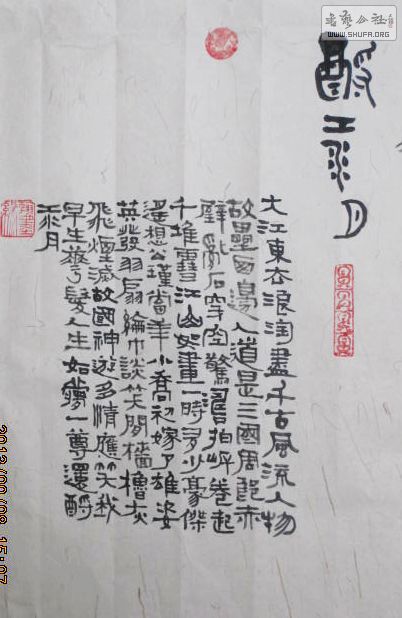 酹江月
大江東去浪淘盡千古風流人物
故壘西邊人道是三國周郎赤
壁亂石穿空驚濤拍岸卷起
千堆雪江山如畫一時多少豪傑
還想公瑾當年小喬初嫁了雄姿
英發羽扇綸巾談笑間檣櫓灰
飛煙滅故國神遊多情應笑我
早生華髮人生如夢一尊還酹
江月
WWW.SHUFA.ORG